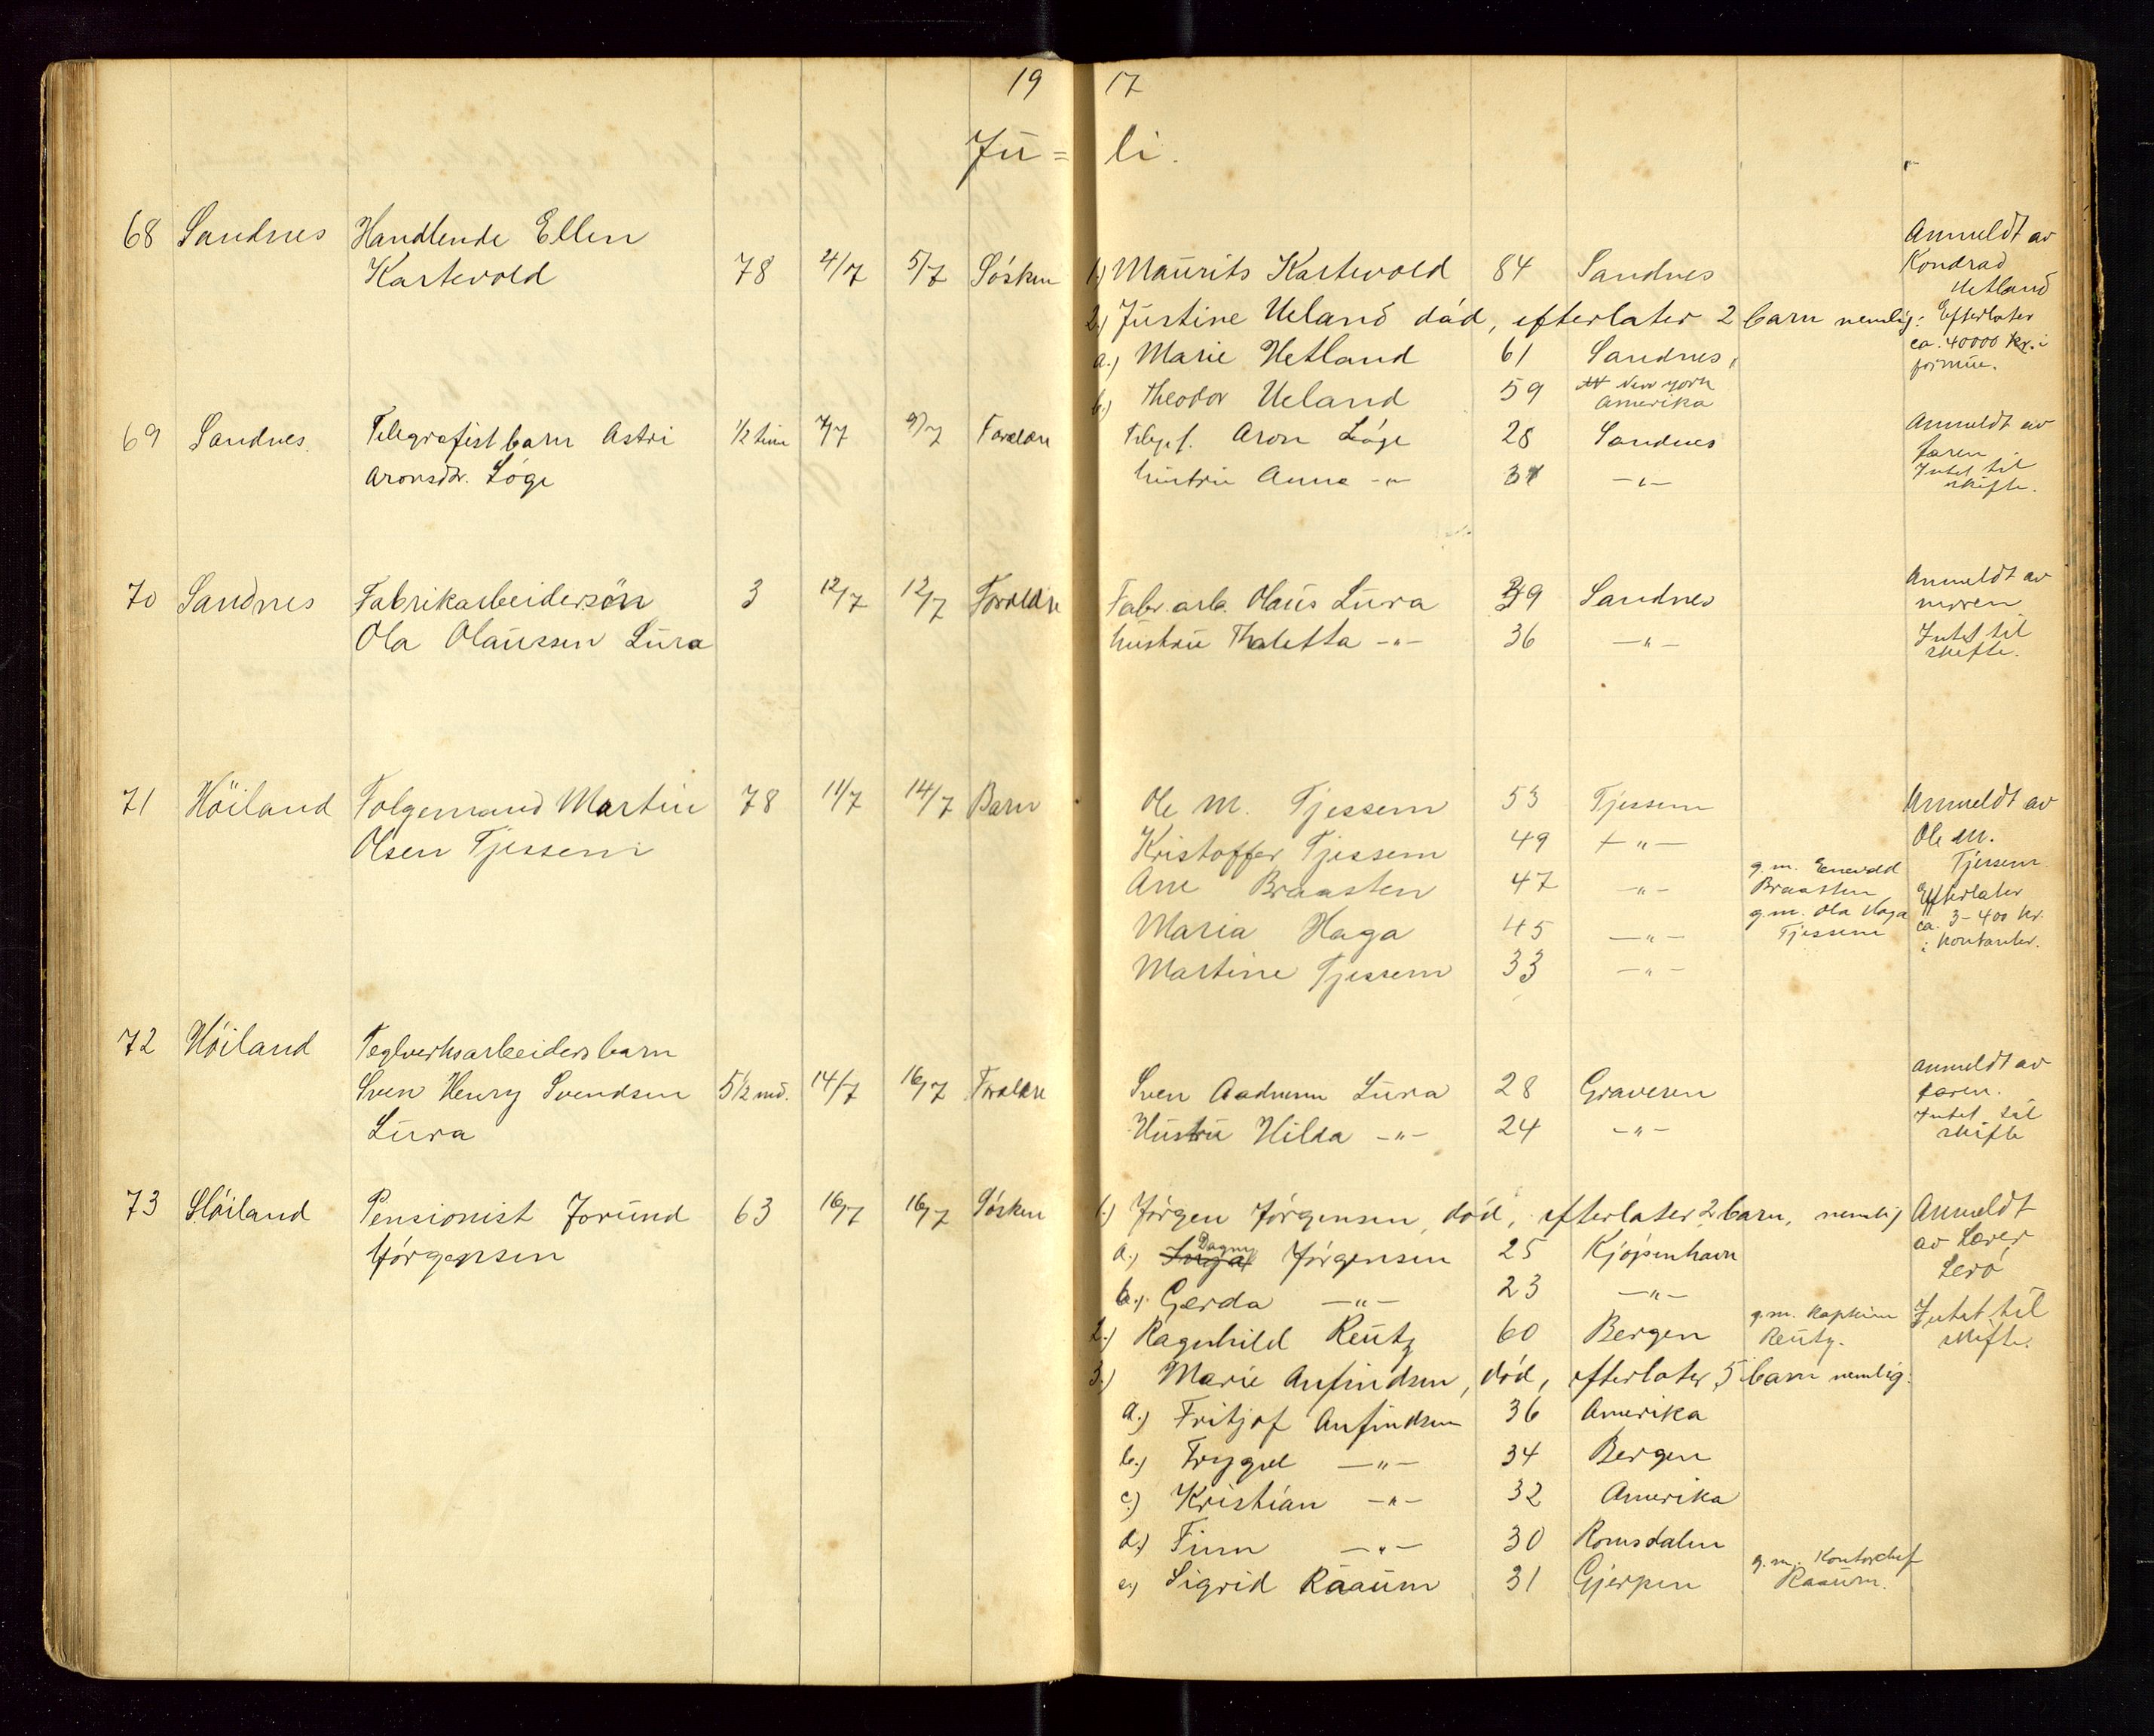 19 17
Ju= li.
68 Sandnes Handlende Ellen Anmeldt av
Kartevold 78 4/7 5/7 Sösken 1.) Maurits Kartevold 84 Sandnes Kondrad
Hetland
2.) Justine Ueland död, efterlater 2 barn nemlig: Efterlater
a.) Marie Hetland 61 Sandnes, ca. 40000 kr. i
formue.
b.) Theodor Ueland 59 New York
Amerika
69 Sandnes. Telegrafist barn Astri 1/2 time 7/7 9/7 Foreldre Telegf. Aron Löge 28 Sandnes Anmeldt av
faren.
Aronsdr. Löge hustru Anna -"- 31 -"- Intet til
skifte.
70 Sandnes Fabrikarbeidersön 3 12/7 12/7 Foreldre Fabr. arb. Olaus Lura 39 Sandnes Anmeldt av
moren
Ola Olaussen Lura hustru Thaletta -"- 36 -"- Intet til
skifte.
71 Höiland Folgemand Martin 78 11/7 14/7 Barn Ole M. Tjessem 53 Tjessem Anmeldt av
Olsen Tjessem Kristoffer Tjessem 49 -"- Ole M.
Tjessem
Ane Braasten 47 -"- g.m. Enevald
Braasten Efterlater
Maria Haga 45 -"- g.m. Ola Haga
Tjessem ca. 3-400 kr.
i kontanter.
Martine Tjessem 33 -"-
72 Höiland Teglverksarbeidersbarn
Sven Henry Svendsen 5 1/2 md. 14/7 16/7 Foreldre Sven Aadnesen Lura 28 Graveren Anmeldt av
faren.
Lura Hustru Hilda -"- 24 -"- Intet til
skifte
73 Höiland Pensionist Jorund 63 16/7 16/7 Sösken 1.) Jörgen Jörgensen, död, efterlater 2 barn, nemlig Anmeldt
Jörgensen a.) Inga Dagny Jörgensen 25 Kjöpenhavn av Lærer
Lerö
b.) Gerda -"- 23 -"-
2.) Ragnhild Reutz 60 Bergen g.m. kaptein
Reutz. Intet til
skifte.
3.) Marie Anfindsen, död, efterlater 5 barn nemlig:
a.) Fritjof Anfindsen 36 Amerika
b.) Trygve -"- 34 Bergen
c.) Kristian -"- 32 Amerika
d.) Finn -"- 30 Romsdalen
e.) Sigrid Raaum 31 Gjerpen g.m. Kontorchef
Raaum.